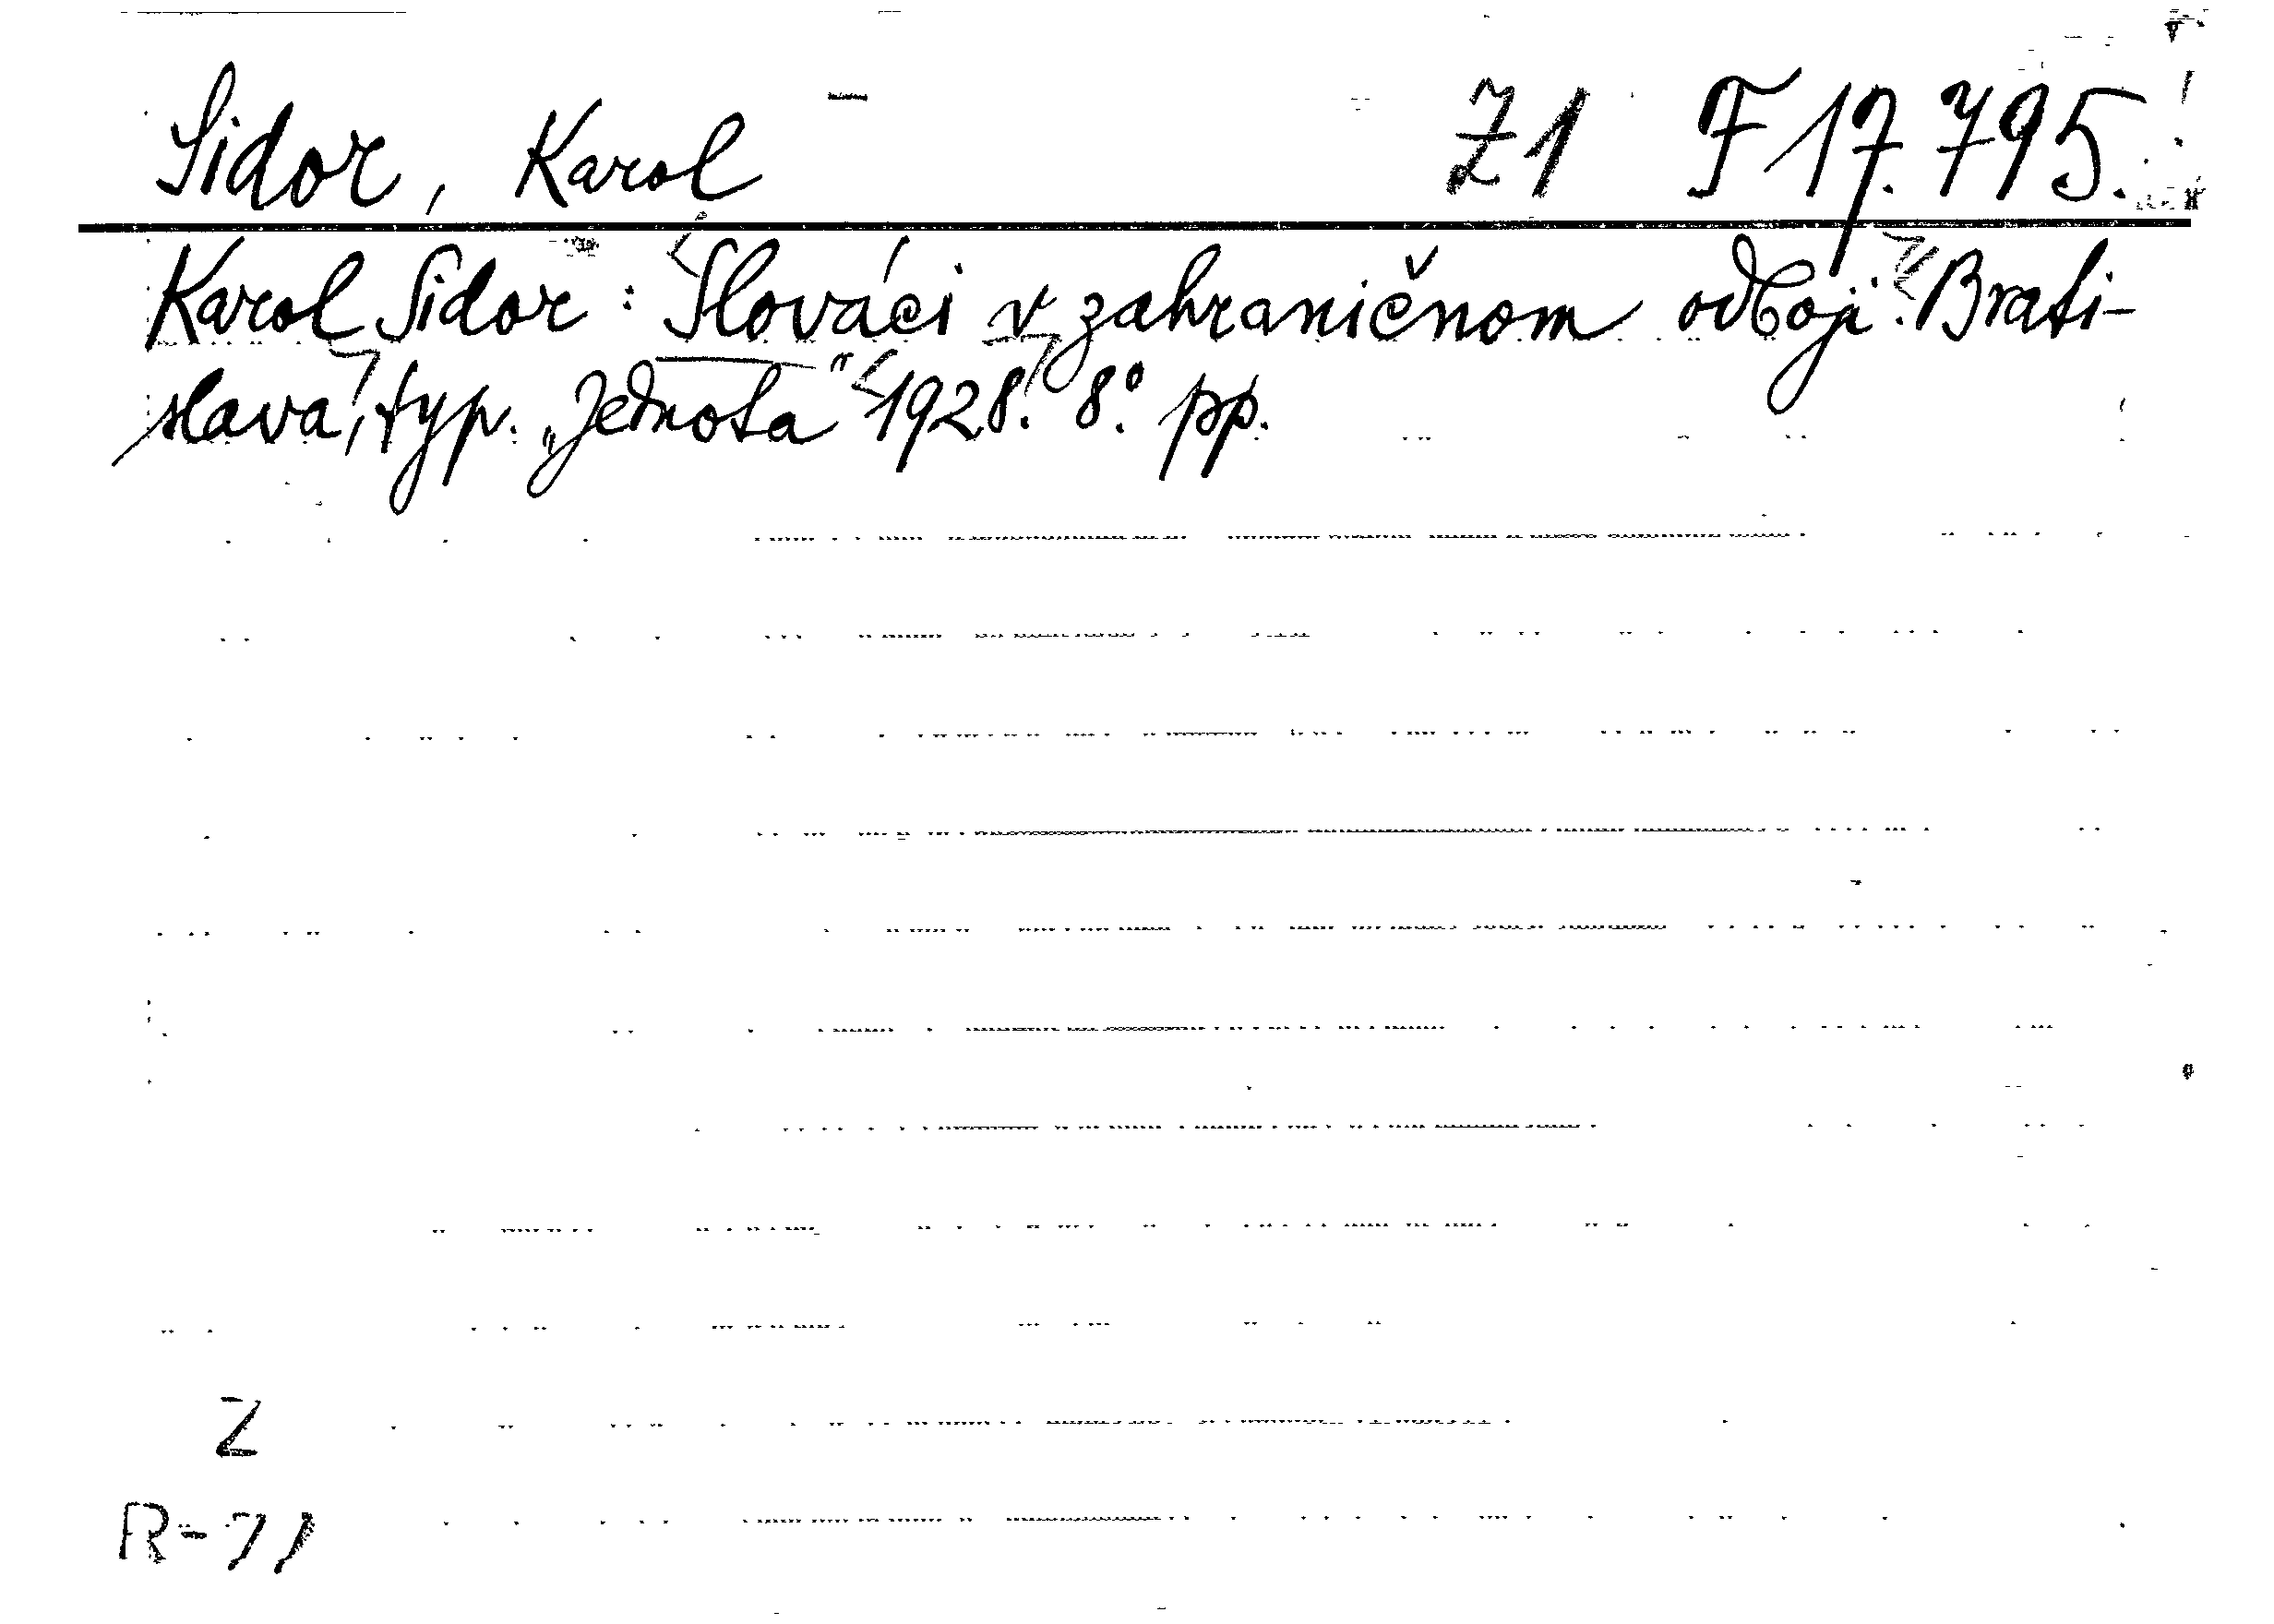 Sidor, Karol Z1 F 17.795.
Karol Sidor: Slováci v zahraničnom odboji. Brati-
slava, typ. „Jednota" 1928. 8°. pp.
Z
R-71